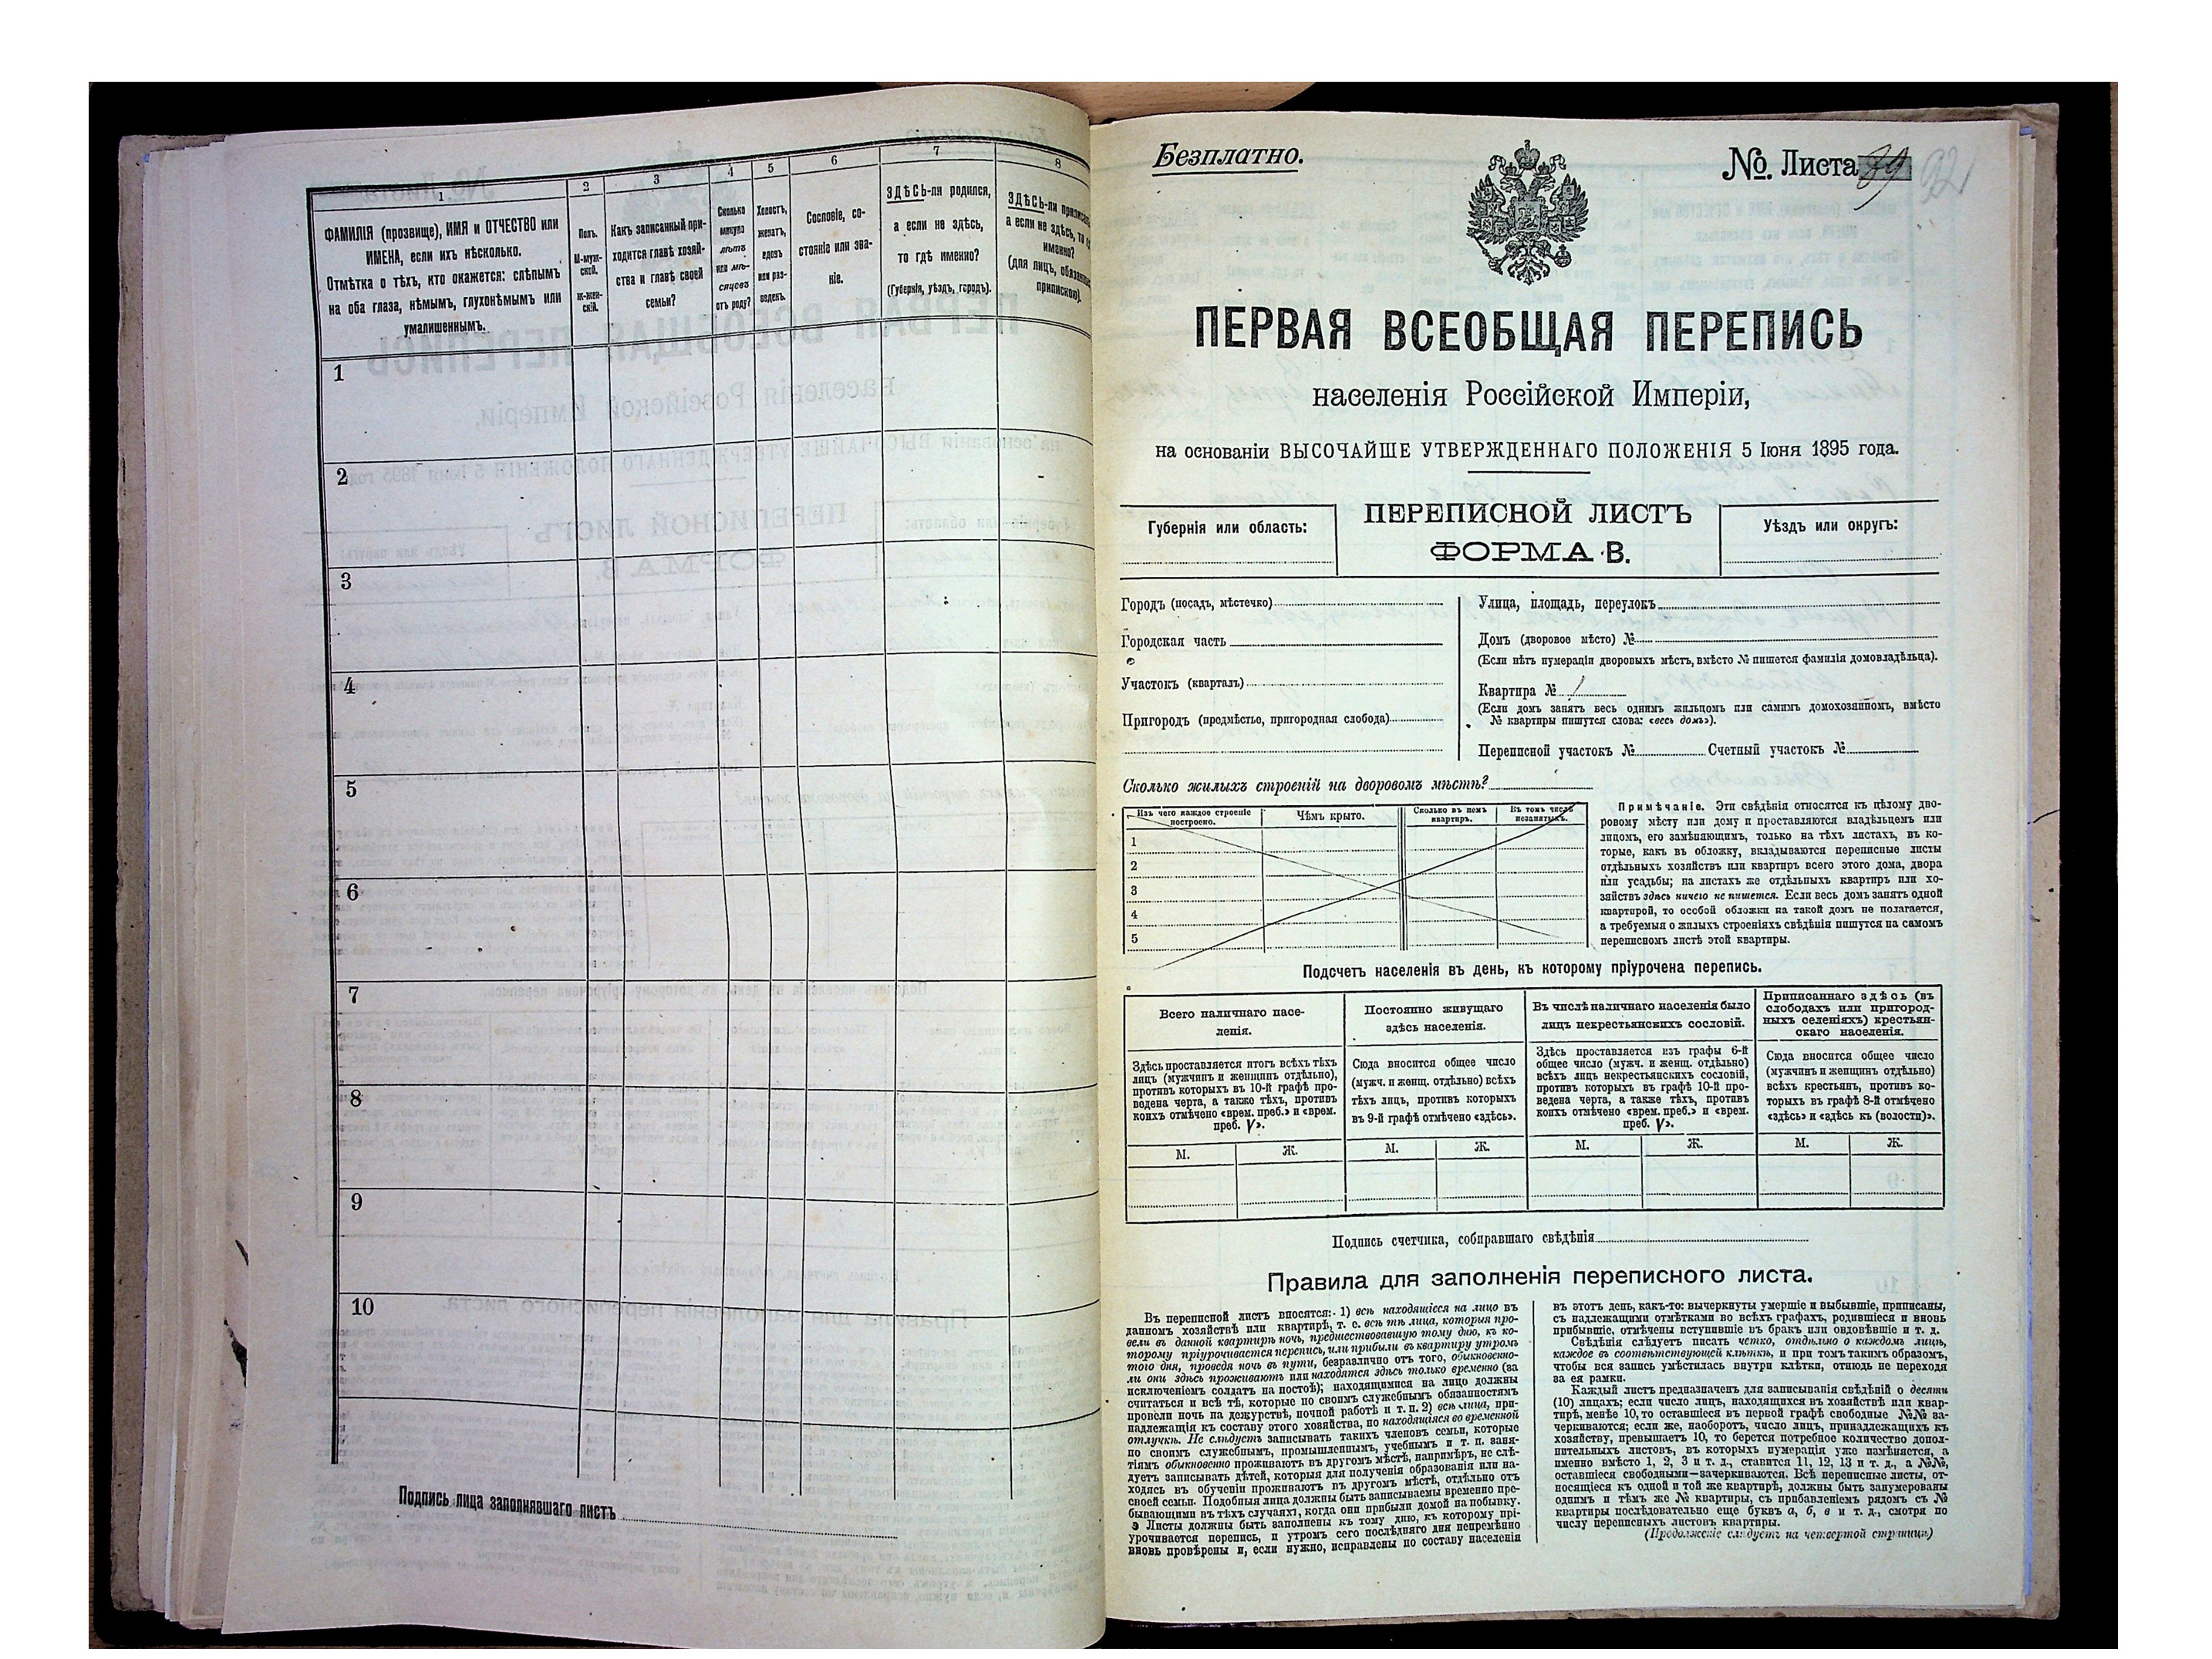 1 2 3 4 5 6 7 8
ФАМИЛІЯ (прозвище), ИМЯ и ОТЧЕСТВО или
ИМЕНА, если ихъ нѣсколько.
Отмѣтка о тѣхъ, кто окажется: слѣпымъ
на оба глаза, нѣмымъ, глухонѣмымъ или
умалишеннымъ.
Полъ.
М-муж-
ской.
ж-жен-
скій.
Какъ записанный при-
ходится главѣ хозяй-
ства и главѣ своей
семьи?
Сколько
минуло
лѣтъ
или мѣ-
сяцовъ
отъ роду?
Холостъ,
женатъ,
вдовъ
или раз-
веденъ.
Сословіе, со-
стояніе или зва-
ніе.
ЗДѢСЬ-ли родился,
а если не здѣсь,
то гдѣ именно?
(Губернія, уѣздъ, городъ).
ЗДѢСЬ-ли
а если не здѣсь,
именно?
(для лицъ,
припискою).
1
2
3
4
5
6
7
8
9
10
Подпись лица заполнявшаго листъ
Безплатно.
№. Листа 39 92
ПЕРВАЯ ВСЕОБЩАЯ ПЕРЕПИСЬ
населенія Россійской Имперіи,
на основаніи ВЫСОЧАЙШЕ УТВЕРЖДЕННАГО ПОЛОЖЕНІЯ 5 Іюня 1895 года.
Губернія или область:
ПЕРЕПИСНОЙ ЛИСТЪ
ФОРМА В.
Уѣздъ или округъ:
Городъ (посадъ, мѣстечко)
Городская часть
Участокъ (кварталъ)
Пригородъ (предмѣстье, пригородная слобода)
Улица, площадь, переулокъ
Домъ (дворовое мѣсто) №
(Если нѣтъ нумераціи дворовыхъ мѣстъ, вмѣсто № пишется фамилія домовладѣльца).
Квартира № 1
(Если домъ занятъ весь однимъ жильцомъ или самимъ домохозяиномъ, вмѣсто
№ квартиры пишутся слова: «весь домъ»).
Переписной участокъ № Счетный участокъ №
Сколько жилыхъ строеній на дворовомъ мѣстѣ?
Изъ чего каждое строеніе
построено.
Чѣмъ крыто.
Сколько въ немъ
квартиръ.
Въ томъ числѣ
незанятыхъ.
1
2
3
4
5
Примѣчаніе. Эти свѣдѣнія относятся къ цѣлому дво-
ровому мѣсту или дому и проставляются владѣльцемъ или
лицомъ, его замѣняющимъ, только на тѣхъ листахъ, въ ко-
торые, какъ въ обложку, вкладываются переписные листы
отдѣльныхъ хозяйствъ или квартиръ всего этого дома, двора
или усадьбы; на листахъ же отдѣльныхъ квартиръ или хо-
зяйствъ здѣсь ничего не пишется. Если весь домъ занятъ одной
квартирой, то особой обложки на такой домъ не полагается,
а требуемыя о жилыхъ строеніяхъ свѣдѣнія пишутся на самомъ
переписномъ листѣ этой квартиры.
Подсчетъ населенія въ день, къ которому пріурочена перепись.
Всего наличнаго насе-
ленія.
Постоянно живущаго
здѣсь населенія.
Въ числѣ наличнаго населенія было
лицъ некрестьянскихъ сословій.
Приписаннаго здѣсь (въ
слободахъ или пригород-
ныхъ селеніяхъ) крестьян-
скаго населенія.
Здѣсь проставляется итогъ всѣхъ тѣхъ
лицъ (мужчинъ и женщинъ отдѣльно),
противъ которыхъ въ 10-й графѣ про-
ведена черта, а также тѣхъ, противъ
коихъ отмѣчено «врем. преб.» и «врем.
преб. V».
Сюда вносится общее число
(мужч. и женщ. отдѣльно) всѣхъ
тѣхъ лицъ, противъ которыхъ
въ 9-й графѣ отмѣчено «здѣсь».
Здѣсь проставляется изъ графы 6-й
общее число (мужч. и женщ. отдѣльно)
всѣхъ лицъ некрестьянскихъ сословій,
противъ которыхъ въ графѣ 10-й про-
ведена черта, а также тѣхъ, противъ
коихъ отмѣчено «врем. преб.» и «врем.
преб. V».
Сюда вносится общее число
(мужчинъ и женщинъ отдѣльно)
всѣхъ крестьянъ, противъ ко-
торыхъ въ графѣ 8-й отмѣчено
«здѣсь» и «здѣсь къ (волости)».
М. Ж. М. Ж. М. Ж. М. Ж.
Подпись счетчика, собиравшаго свѣдѣнія
Правила для заполненія переписного листа.
Въ переписной листъ вносятся: 1) всѣ находящіеся на лицо въ
данномъ хозяйствѣ или квартирѣ, т. е. всѣ тѣ лица, которыя про-
вели въ данной квартирѣ ночь, предшествовавшую тому дню, къ ко-
торому пріурочивается перепись, или прибыли въ квартиру утромъ
того дня, проведя ночь въ пути, безразлично отъ того, обыкновенно-
ли они здѣсь проживаютъ или находятся здѣсь только временно (за
исключеніемъ солдатъ на постоѣ); находящимися на лицо должны
считаться и всѣ тѣ, которые по своимъ служебнымъ обязанностямъ
провели ночь на дежурствѣ, ночной работѣ и т. п. 2) всѣ лица, при-
надлежащія къ составу этого хозяйства, но находящіяся во временной
отлучкѣ. Не слѣдуетъ записывать такихъ членовъ семьи, которые
по своимъ служебнымъ, промышленнымъ, учебнымъ и т. п. заня-
тіямъ обыкновенно проживаютъ въ другомъ мѣстѣ, напримѣръ, не слѣ-
дуетъ записывать дѣтей, которыя для полученія образованія или на-
ходясь въ обученіи проживаютъ въ другомъ мѣстѣ, отдѣльно отъ
своей семьи. Подобныя лица должны быть записываемы временно пре-
бывающими въ тѣхъ случаяхъ, когда они прибыли домой на побывку.
Листы должны быть заполнены къ тому дню, къ которому прі-
урочивается перепись, и утромъ сего послѣдняго дня непремѣнно
вновь провѣрены и, если нужно, исправлены по составу населенія
въ этотъ день, какъ-то: вычеркнуты умершіе и выбывшіе, приписаны,
съ надлежащими отмѣтками во всѣхъ графахъ, родившіеся и вновь
прибывшіе, отмѣчены вступившіе въ бракъ или овдовѣвшіе и т. д.
Свѣдѣнія слѣдуетъ писать четко, отдѣльно о каждомъ лицѣ,
каждое въ соотвѣтствующей клѣткѣ, и при томъ такимъ образомъ,
чтобы вся запись умѣстилась внутри клѣтки, отнюдь не переходя
за ея рамки.
Каждый листъ предназначенъ для записыванія свѣдѣній о десяти
(10) лицахъ; если число лицъ, находящихся въ хозяйствѣ или квар-
тирѣ, менѣе 10, то оставшіеся въ первой графѣ свободные №№ за-
черкиваются; если же, наоборотъ, число лицъ, принадлежащихъ къ
хозяйству, превышаетъ 10, то берется потребное количество допол-
нительныхъ листовъ, въ которыхъ нумерація уже измѣняется, а
именно вмѣсто 1, 2, 3 и т. д., ставится 11, 12, 13 и т. д., а №№,
оставшіеся свободными—зачеркиваются. Всѣ переписные листы, от-
носящіеся къ одной и той же квартирѣ, должны быть занумерованы
однимъ и тѣмъ же № квартиры, съ прибавленіемъ рядомъ съ №
квартиры послѣдовательно еще буквъ а, б, в и т. д., смотря по
числу переписныхъ листовъ квартиры.
(Продолженіе слѣдуетъ на четвертой страницѣ)